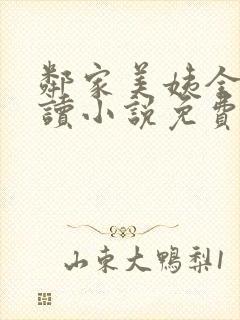 鄰家美姨全
讀小說免費
山东大鴨梨1